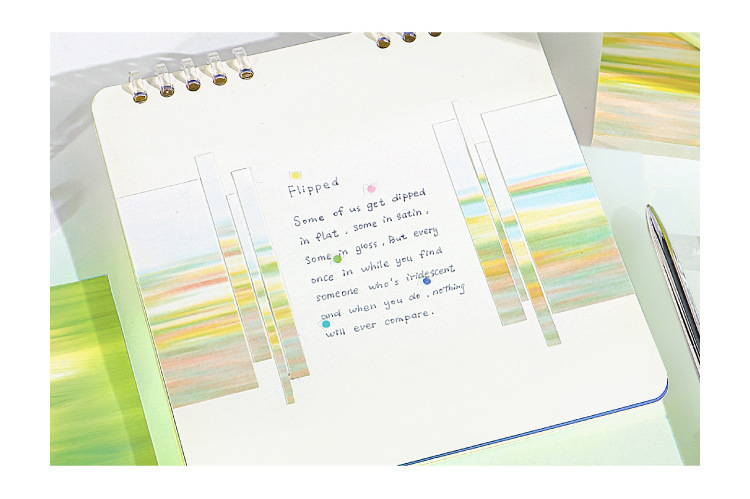 Flipped
Some of us get dipped
in flat , some in satin ,
Some in gloss , But every
once in while you find
someone who's iridescent
and when you do , nothing
will ever compare .